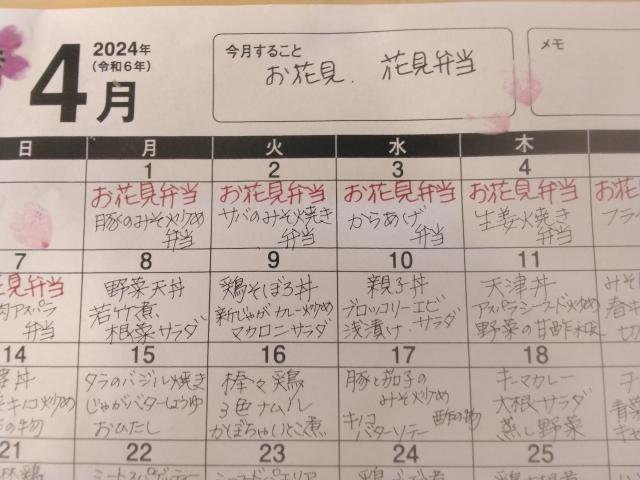 4月
2024年
(令和6年)
今月すること
お花見、花見弁当
メモ
日 月 火 水 木
1 2 3 4
お花見弁当
豚のみそ炒め
弁当
お花見弁当
サバのみそ焼き
弁当
お花見弁当
からあげ
弁当
お花見弁当
生姜焼き
弁当
お花
フラ
7 8 9 10 11
見弁当
肉アスパラ
弁当
野菜天丼
若竹煮
根菜サラダ
鶏そぼろ丼
新じゃがカレー炒め
マカロニサラダ
親子丼
ブロッコリーエビ
浅漬け サラダ
天津丼
アスパラシーフード炒め
野菜の甘酢
みそ
14 15 16 17 18
丼
キノコ炒め
の物
タラのバジル焼き
じゃがバターしょうゆ
おひたし
棒々鶏
3色ナムル
かぼちゃいとこ煮
豚と茄子の
みそ炒め
キノコ
バターソテー
酢の物
キーマカレー
大根サラダ
蒸し野菜
21 22 23 24 25